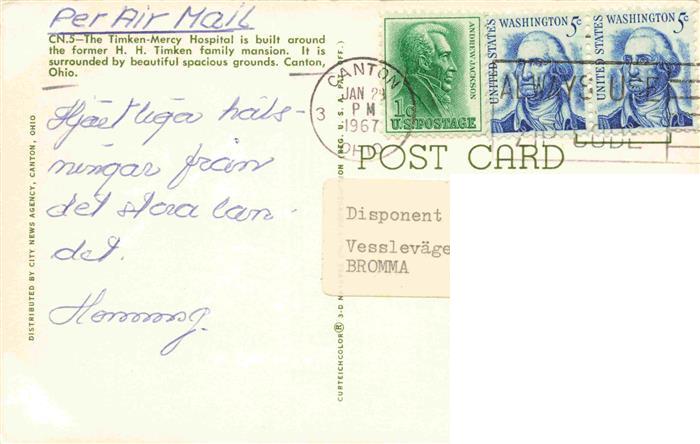 Per Air Mail
CN.5—The Timken-Mercy Hospital is built around
the former H. H. Timken family mansion. It is
surrounded by beautiful spacious grounds. Canton,
Ohio.
Hjärtliga häls-
ningar från
det stora lan-
det.
DISTRIBUTED BY CITY NEWS AGENCY, CANTON, OHIO
CURTEICHCOLOR® 3-D
(REG. U. S. A.
ANDREW JACKSON
1¢
U.S. POSTAGE
UNITED STATES
WASHINGTON 5c
UNITED STATES
WASHINGTON 5c
CANTON
JAN 2
3 PM
1967
OHIO
ALWAYS USE
ZIP CODE
POST CARD
Disponent
Vessleväge
BROMMA